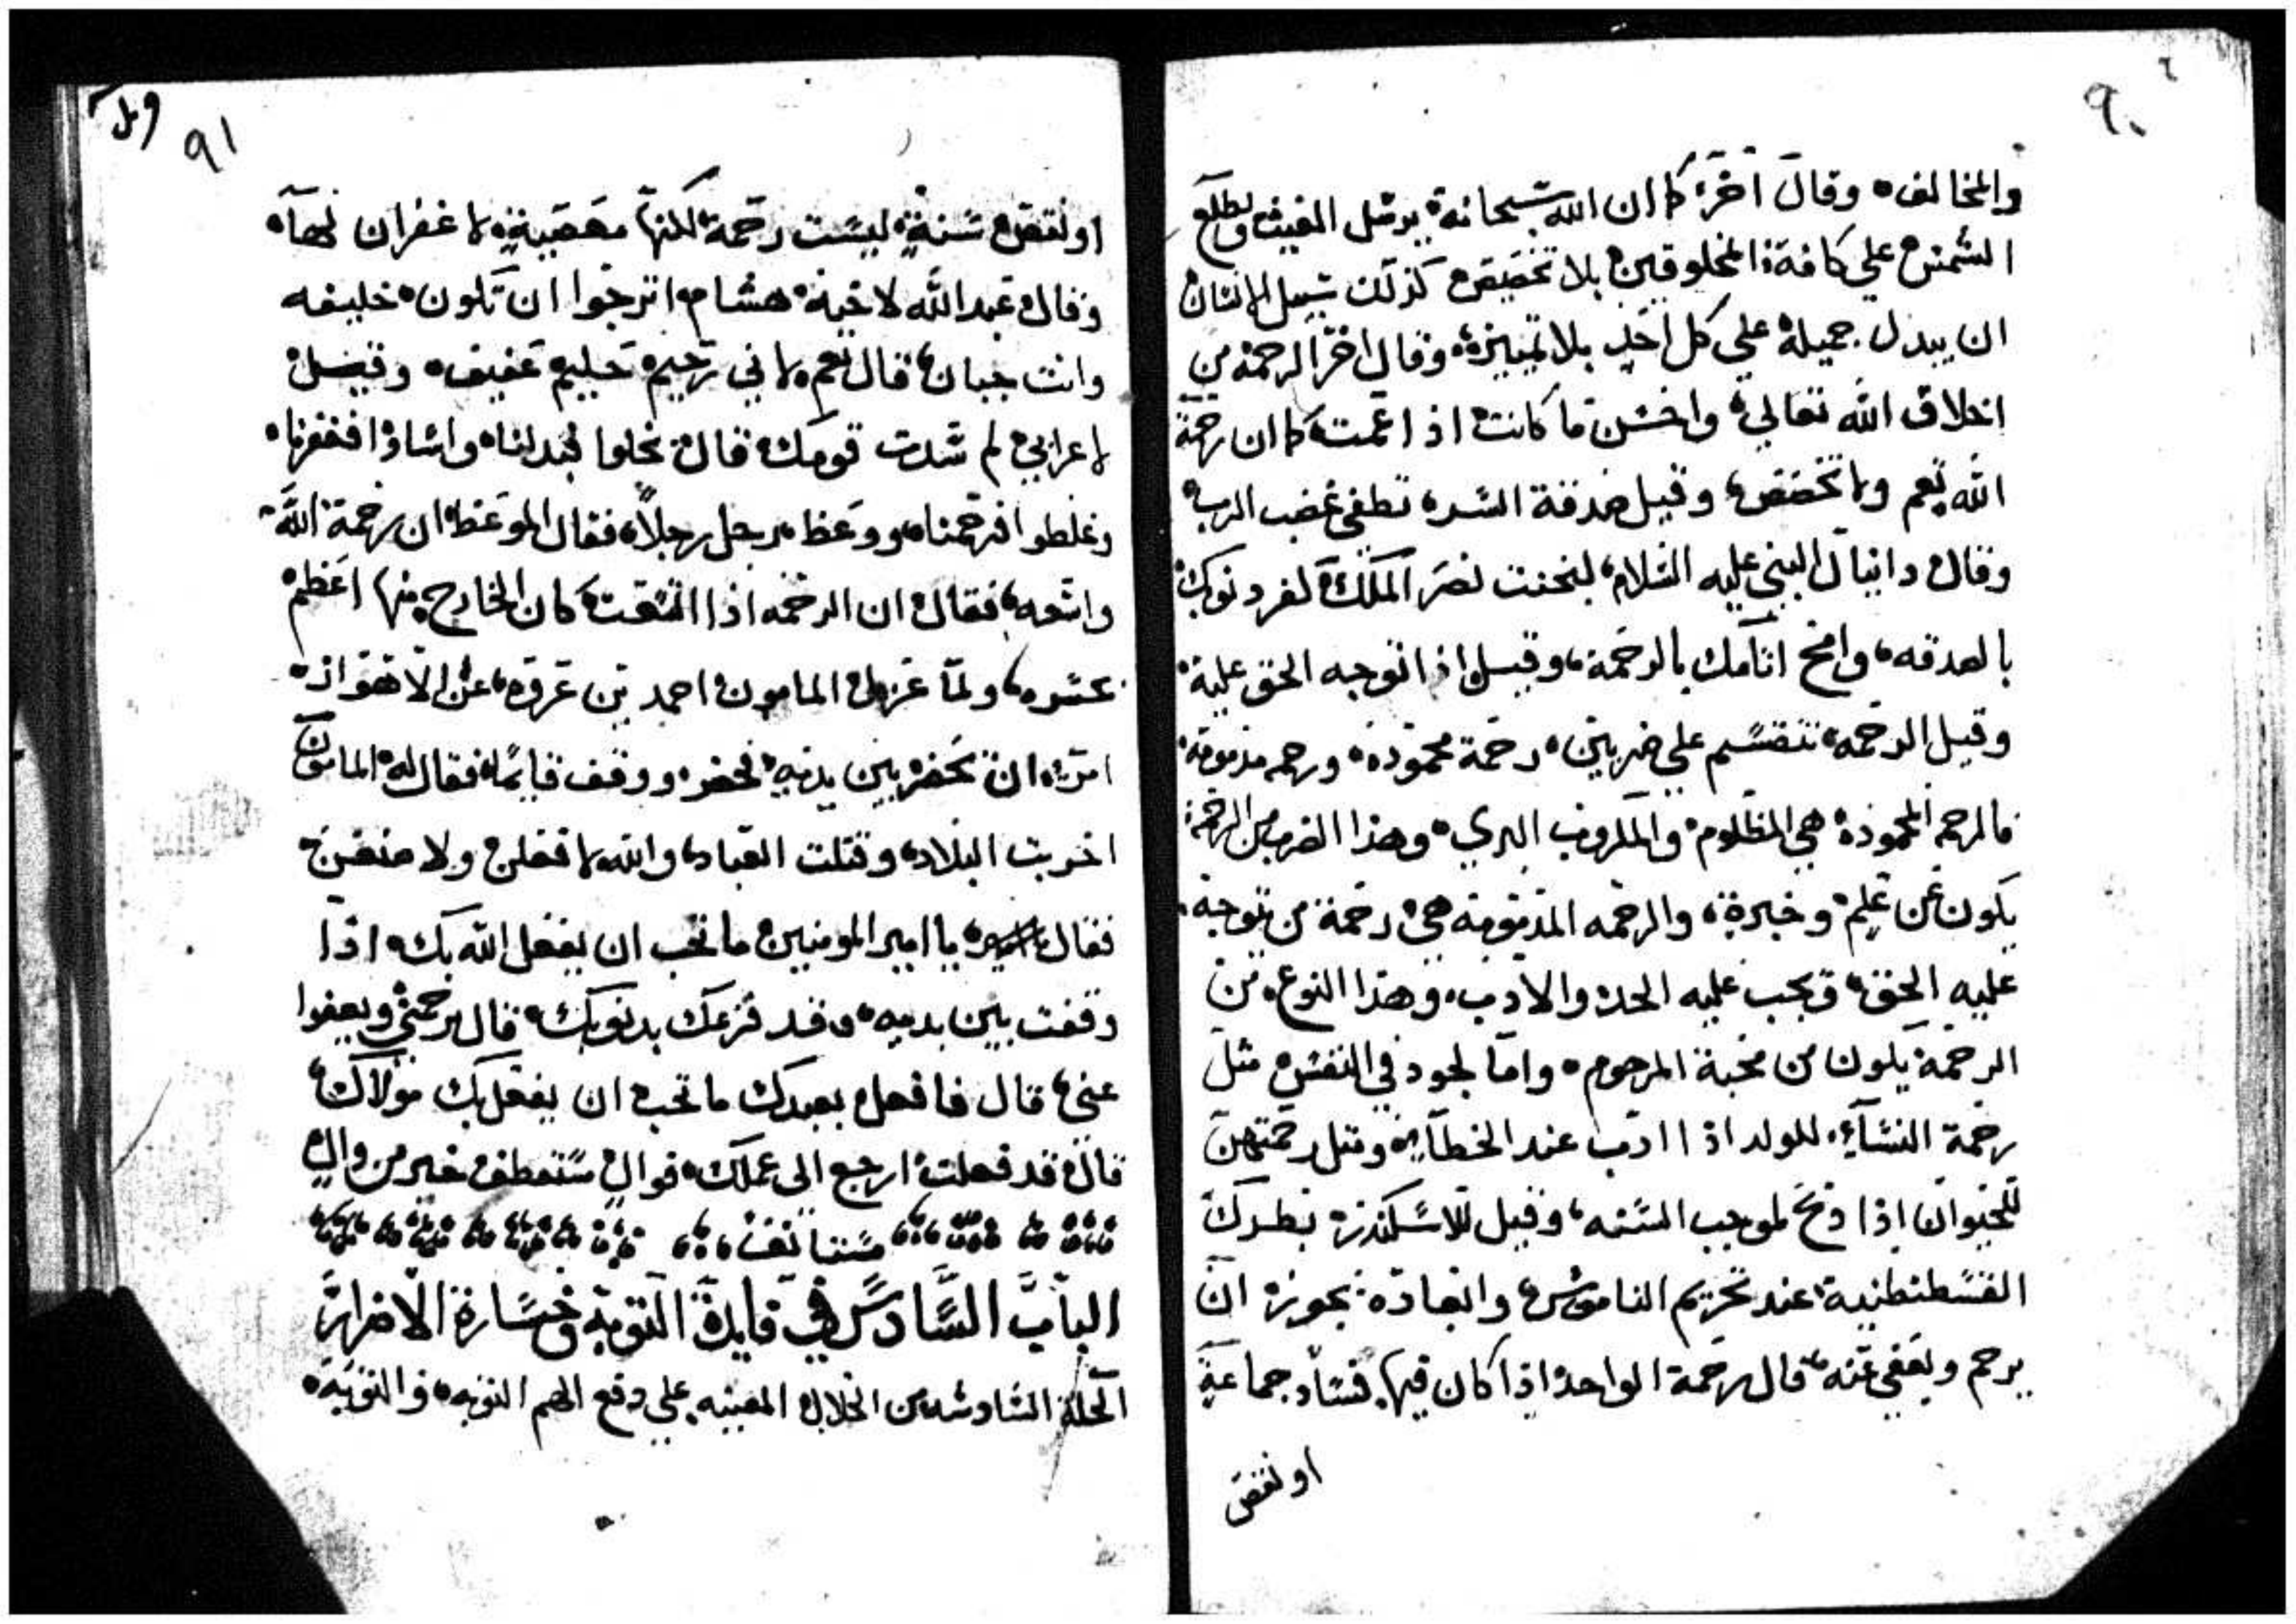 ٩٠
والمخالف، وقال اخر، كما ان الله سبحانه يرسل الغيث ويطلع
الشمس علي كافة المخلوقين بلا تخصيص كذلك سبيل الانسان
ان يبدل جميله علي كل احد بلا تمييز، وقال اخر الرحمة من
اخلاق الله تعالي، واحسن ما كانت اذا عمت كما ان رحمة
الله تعم ولا تخصص، وقيل صدقة السر، تطفي غضب الرب
وقال دانيال النبي عليه السلام، لبختت نصر الملك كفر ذنوبك
بالصدقه، وامح اثامك بالرحمة، وقيل اذا توجه الحق علية
وقيل الرحمه تنقسم علي ضربين، رحمة محمودة، ورحمه مذمومة
فالرحمه المحمودة هي المظلوم والمكروب البري، وهذا الضرب من الرحمة
يكون عن علم وخبرة، والرحمه المذمومة هي رحمة من توجه
عليه الحق، وبحب عليه الحد والادب، وهذا النوع من
الرحمة يكون من محبة المرحوم، واما لجود في النفس مثل
رحمة النسآء للولد اذا ادب عند الخطآء، ومثل رحمتهن
للحيوان اذا ذبح لموجب السنه، وقيل للاسكندرة بطرك
القسطنطنية عند تحريم الناموس والعادة يجوز ان
يرحم ويعفي عنه، قال رحمة الواحد اذا كان فيها فساد جماعة
او نقض
٩١
او نقض سنة ليست رحمة لكنها معصية لا غفران لهآ،
وقال عبد الله لاخية هشام، اترجوا ان تكون خليفه
وانت جبان، قال نعم لاني رحيم حليم عفيف، وقيل
لاعرابي لم سدت قومك قال بخلوا فبدلنا، واساوا فغفرنا،
وغلطوا فرحمنا، ووعظ رجل رجلاً، فقال الموعظ ان رحمة الله
واسعه، فقال ان الرحمه اذا اتسقت كان الخارج منها اعظم
عسره، ولما عزل المامون احمد بن عروه، عن الاهواز
امر، ان يحضر بين يديه فحضر، ووقف قايمًا، فقال له المامون
اخربت البلاد، وقتلت العباد، والله لافعلن ولا صنعن
فقال يا امير المومنين ما تحب ان يفعل الله بك، اذا
وقفت بين يديه، وقد قرعك بذنوبك، قال يرحمني ويعفوا
عني، قال فافعل بعبدك ما تحب ان يفعل بك مولاك،
قال قد فعلت ارجع الي عملك، فوال ستعطف خير من وال
مستانف
الباب السادس في فايدة التوبة وخسارة الاضرار
الخلة السادسه من الخلال المعينه علي دفع الهم التوبه، والتوبه